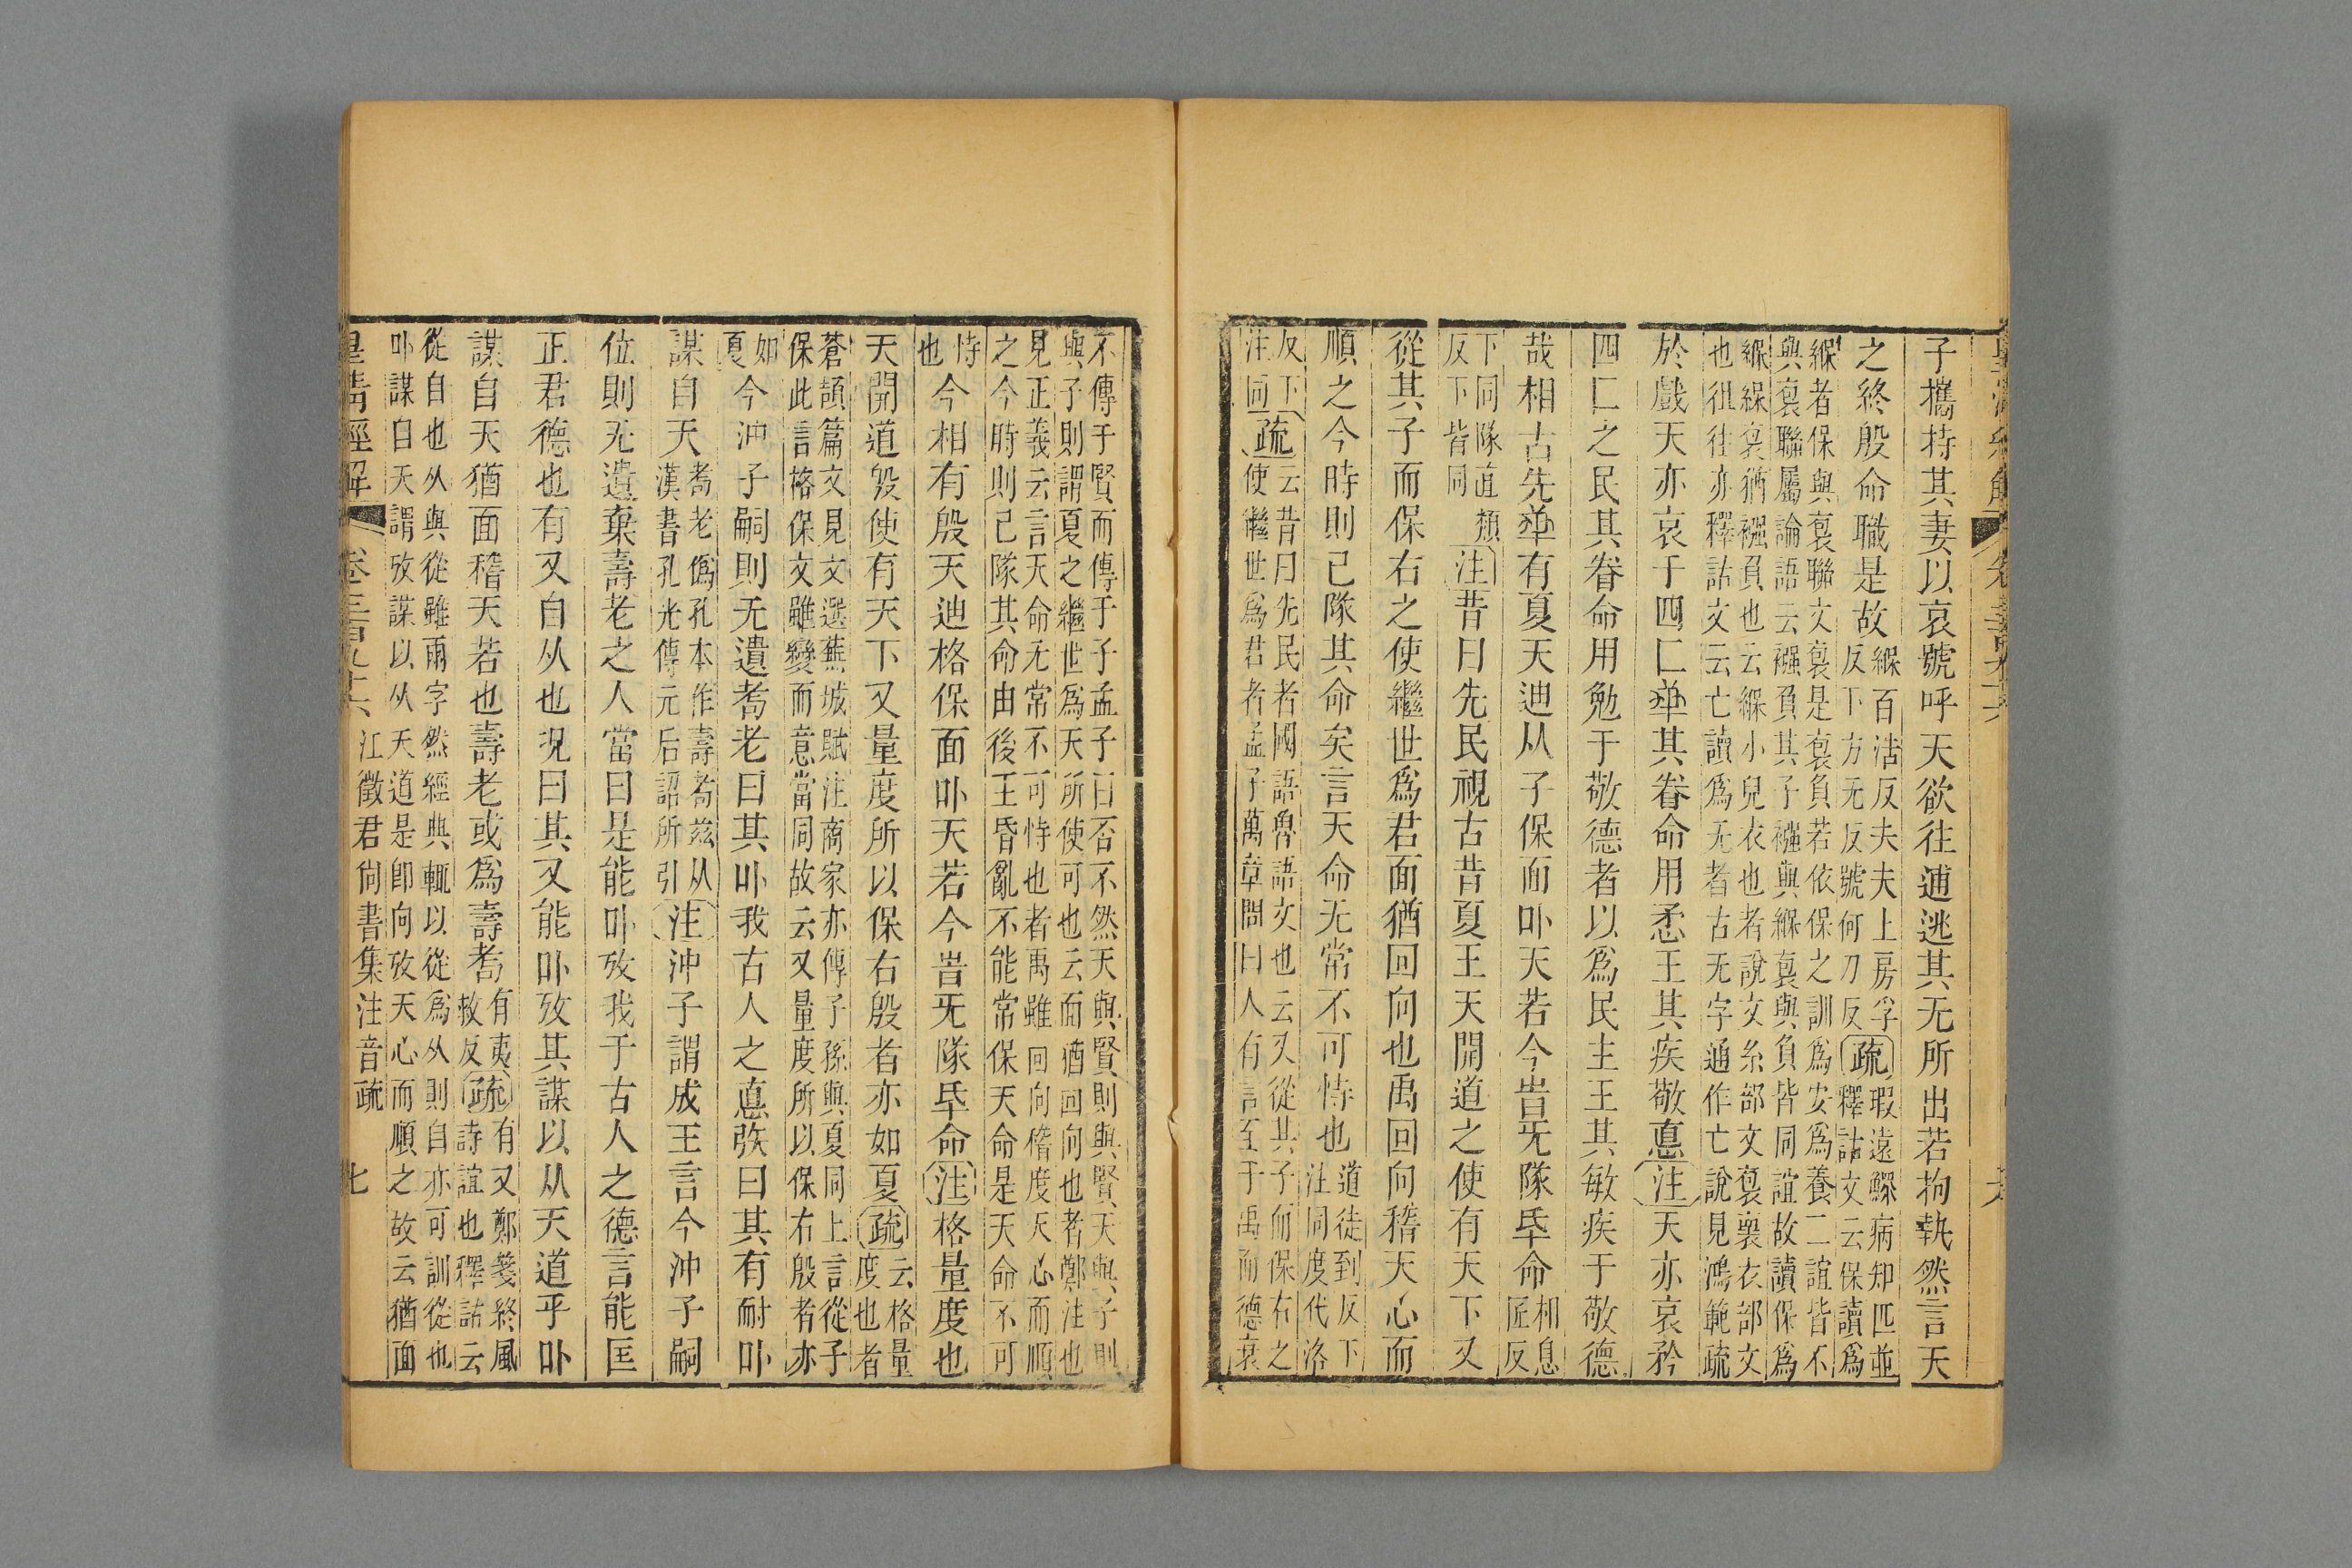 子攜持其妻以哀號呼天欲往逋逃其无所出若拘執然言天
之終殷命職是故緥百活反夫夫上房孚反下方无反號何刀反疏瑕遠鰥病却匹並釋詁文云保讀爲
緥者保與裒聯文裒是裒負若依保之訓爲安爲養二誼皆不
與裒聯屬論語云襁負其子襁與緥裒與負皆同誼故讀保爲
緥緥裒猶襁負也云緥小兒衣也者說文糸部文裒裹衣部文
也徂往亦釋詁文云亡讀爲无者古无字通作亡說見鴻範疏
於戲天亦哀于四匚㚔其眷命用懋王其疾敬悳注天亦哀矜
四匚之民其眷命用勉于敬德者以爲民主王其敏疾于敬德
哉相古先㚔有夏天迪从子保面卟天若今旹旡隊氒命相息匠反
下同隊直類反下皆同注昔曰先民視古昔夏王天開道之使有天下又
從其子而保右之使繼世爲君面猶回向也禹回向稽天心而
順之今時則已隊其命矣言天命无常不可恃也道徒到反下注同度代洛
反下注同疏云昔曰先民者國語魯語文也云又從其子而保右之
使繼世爲君者孟子萬章問曰人有言至于禹而德衰
不傳于賢而傳于子孟子曰否不然天與賢則與賢天與子則
與子則謂夏之繼世爲天所使可也云面猶回向也者鄭注也
見正義云言天命无常不可恃也者禹雖回向稽度天心而順
之今時則已隊其命由後王昏亂不能常保天命是天命不可
恃也今相有殷天迪格保面卟天若今旹旡隊氒命注格量度也
天開道殷使有天下又量度所以保右殷者亦如夏疏云格量度也者
蒼頡篇文見文選蕪城賦注商家亦傳子孫與夏同上言從子
保此言格保文雖變而意當同故云又量度所以保右殷者亦
如夏今沖子嗣則无遺耉老曰其卟我古人之悳矤曰其有耐卟
謀自天耉老僞孔本作壽耉兹从漢書孔光傳元后詔所引注沖子謂成王言今沖子嗣
位則无遺棄壽老之人當曰是能卟攷我于古人之德言能匡
正君德也有又自从也況曰其又能卟攷其謀以从天道乎卟
謀自天猶面稽天若也壽老或爲壽耉有夷救反疏有又鄭箋終風詩誼也釋詁云
從自也从與從雖兩字然經典輒以從爲从則自亦可訓從也
卟謀自天謂攷謀以从天道是卽向攷天心而順之故云猶面
皇清經解 卷三百九十六 江徵君尙書集注音疏 七